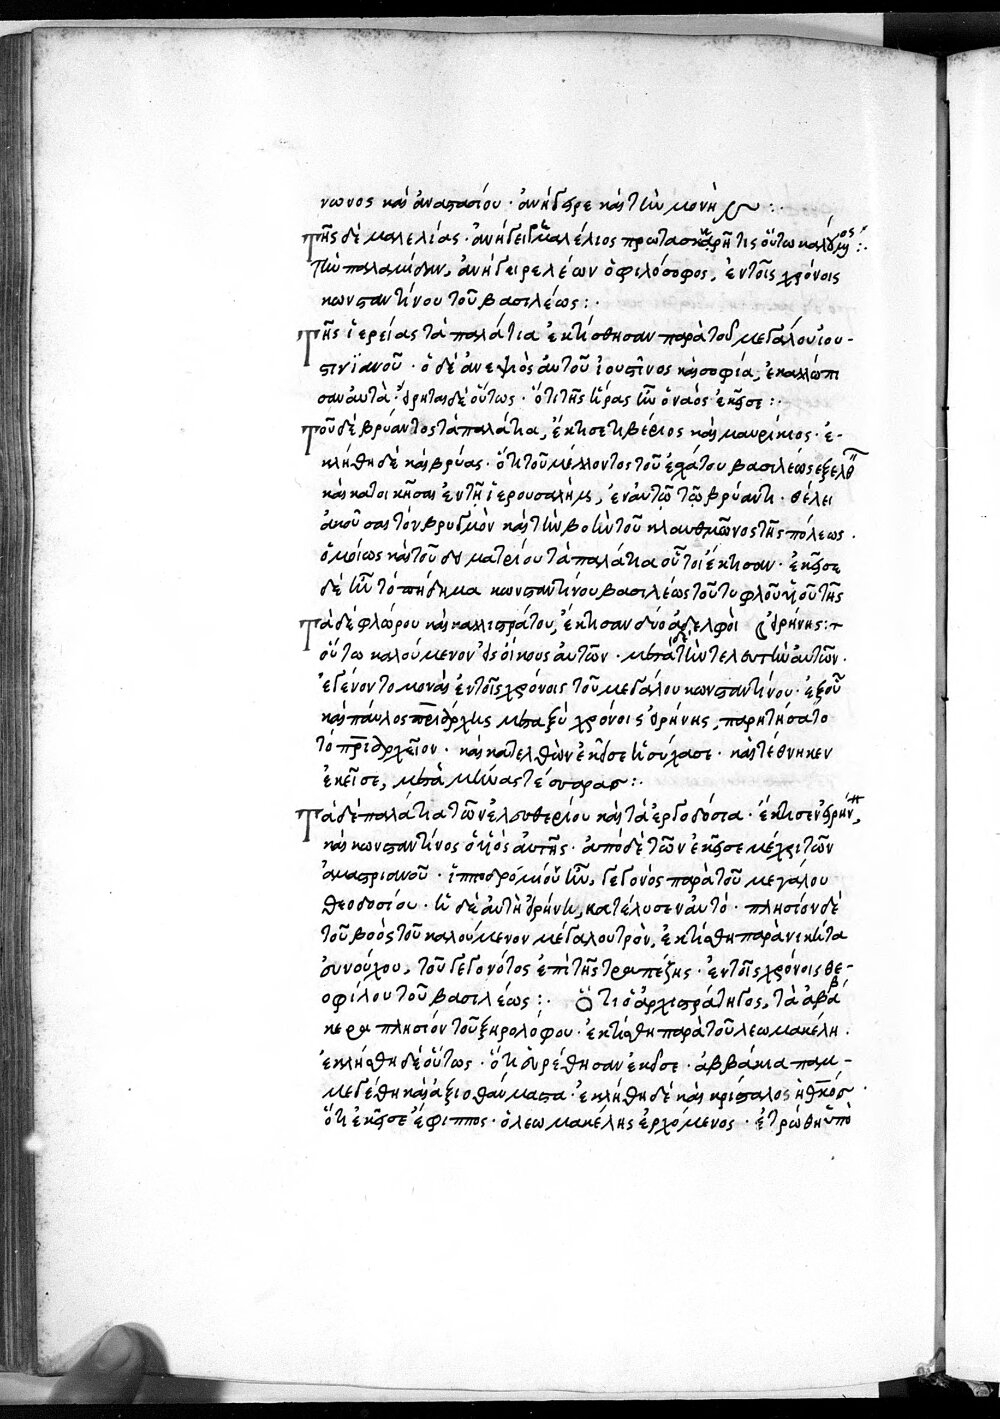 νωνος καὶ ἀναστασίου · ἀνήγειρε καὶ τὴν μονὴν :·
Τῆς δὲ μαλελίας · ἀνήγειρε μαλέλιος πρωτασηκρῆτις οὕτω καλούμενος :·
Τὴν παλακιδὴν, ἀνήγειρε λέων ὁ φιλόσοφος, ἐν τοῖς χρόνοις
κωνσταντίνου τοῦ βασιλέως :·
Τῆς ἱερείας τὰ παλάτια ἐκτίσθησαν παρὰ τοῦ μεγάλου ἰου-
στινϊανοῦ · ὁ δὲ ἀνεψιὸς αὐτοῦ ἰουστῖνος καὶ σοφία, ἐκαλλώπι
σαν αὐτὰ · εὕρηται δὲ οὕτως · ὅτι τῆς ἥρας ἦν ὁ ναὸς ἐκεῖσε :·
Τοῦ δὲ βρύαντος τὰ παλάτια, ἔκτισε τιβέριος καὶ μαυρίκιος · ἐ-
κλήθη δὲ καὶ βρύας · ὅτι τοῦ μέλλοντος τοῦ ἐσχάτου βασιλέως ἐξελθεῖν
καὶ κατοικῆσαι ἐν τῇ ἱερουσαλὴμ, ἐν αὐτῷ τῷ βρύαντι · θέλει
ἀκοῦσαι τὸν βρυγμὸν καὶ τὴν βοὴν τοῦ κλαυθμῶνος τῆς πόλεως ·
ὁμοίως καὶ τοῦ δαματρίου τὰ παλάτια οὗτοι ἔκτισαν · ἐκεῖσε
δὲ ἦν τὸ πήδημα κωνσταντίνου βασιλέως τοῦ τυφλοῦ υἱοῦ τῆς
Τὰ δὲ φλώρου καὶ καλλιστράτου, ἔκτισαν δύο ἀδελφοὶ εἰρήνης :·
οὕτω καλούμενον εἰς οἴκους αὐτῶν · μετὰ δὲ τὴν τελευτὴν αὐτῶν ·
ἐγένοντο μοναὶ ἐν τοῖς χρόνοις τοῦ μεγάλου κωνσταντίνου · ἐξ οὗ
καὶ παύλος πριάρχης μεταξὺ χρόνοις εἰρήνης, παρῃτήσατο
τὸ πριαρχεῖον · καὶ κατελθὼν ἐκεῖσε ἡσύχασε · καὶ τέθνηκεν
ἐκεῖσε, μετὰ μῆνας τέσσαρας :·
Τὰ δὲ παλάτια τῶν ἐλευθερίου καὶ τὰ ἐργοδόσια · ἔκτισεν εἰρήνη,
καὶ κωνσταντῖνος ὁ υἱὸς αὐτῆς · ἀπὸ δὲ τῶν ἐκεῖσε μέχρι τῶν
ἀμαστριανοῦ · ἱπποδρόμιον ἦν, γεγονὸς παρὰ τοῦ μεγάλου
θεοδοσίου · ἡ δὲ αὐτὴ εἰρήνη, κατέλυσεν αὐτὸ · πλησίον δὲ
τοῦ βοὸς τοῦ καλούμενον μέγα λουτρὸν, ἐκτίσθη παρὰ νικήτα
εὐνούχου, τοῦ γεγονότος ἐπὶ τῆς τραπέζης · ἐν τοῖς χρόνοις θε-
οφίλου τοῦ βασιλέως :· Ὅτι ὁ ἀρχιστράτηγος, τὰ ἀβα
κερα πλησίον τοῦ ξηρολόφου · ἐκτίσθη παρὰ τοῦ λεωμακέλη ·
ἐκλήθη δὲ οὕτως · ὅτι εὑρέθησαν ἐκεῖσε · ἀββάκια παμ-
μεγέθη καὶ ἀξιοθαύμαστα · ἐκλήθη δὲ καὶ κρίσταλος
ὅτι ἐκεῖσε ἔφιππος · ὁ λεωμακέλης ἐρχόμενος · ἐτρώθη ὑπὸ